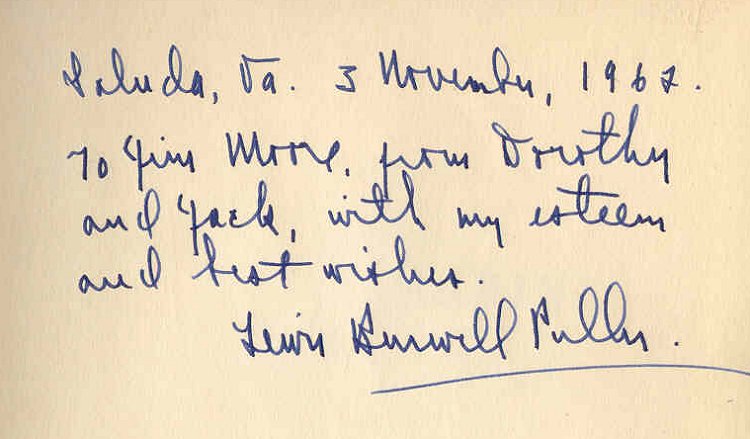 Saluda, Va. 3 November, 1962.
To Jim Moore, from Dorothy
and Jack, with my esteem
and best wishes.
Lewis Burwell Puller.